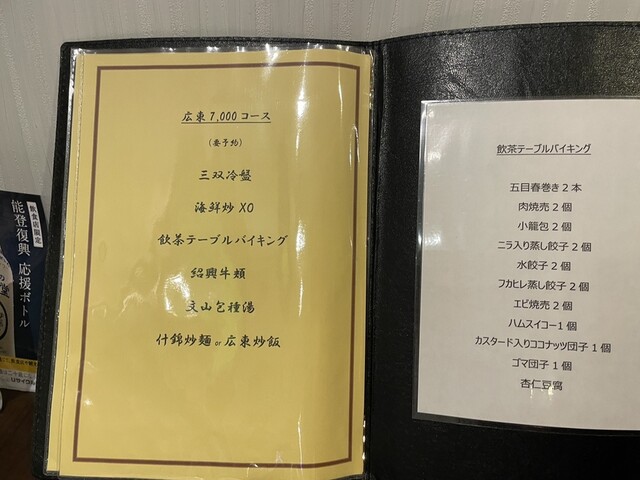 広東 7,000 コース
(要予約)
三双冷盤
海鮮炒 XO
飲茶テーブルバイキング
紹興牛頬
文山包種湯
什錦炒麺 or 広東炒飯
飲茶テーブルバイキング
五目春巻き 2 本
肉焼売 2 個
小籠包 2 個
ニラ入り蒸し餃子 2 個
水餃子 2 個
フカヒレ蒸し餃子 2 個
エビ焼売 2 個
ハムスイコー1 個
カスタード入りココナッツ団子 1 個
ゴマ団子 1 個
杏仁豆腐
飲食店限定
能登復興 応援ボトル